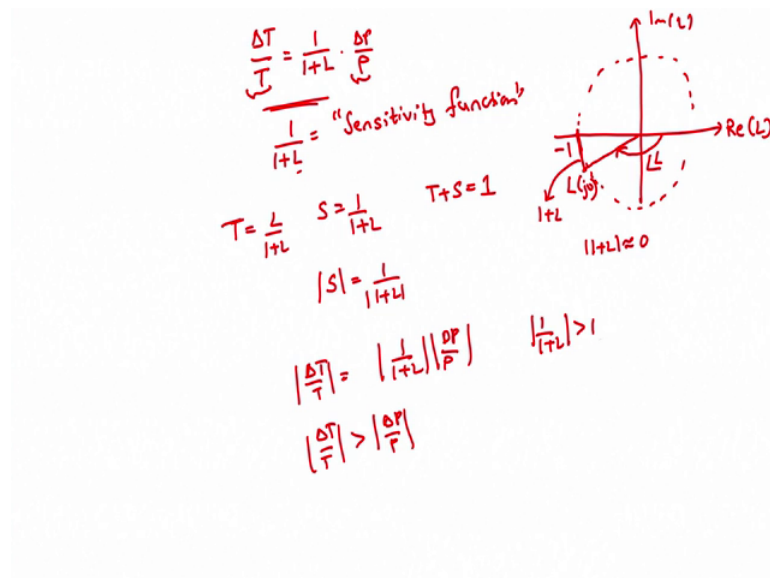 ΔT/T = 1/(1+L) · ΔP/P
1/(1+L) = "Sensitivity function"
T = L/(1+L)   S = 1/(1+L)   T+S=1
|S| = 1/|1+L|
|ΔT/T| = |1/(1+L)| |ΔP/P|   |1/(1+L)| > 1
|ΔT/T| > |ΔP/P|
Im(L)
Re(L)
-1
∠L
L(jω)
1+L
|1+L| ≈ 0